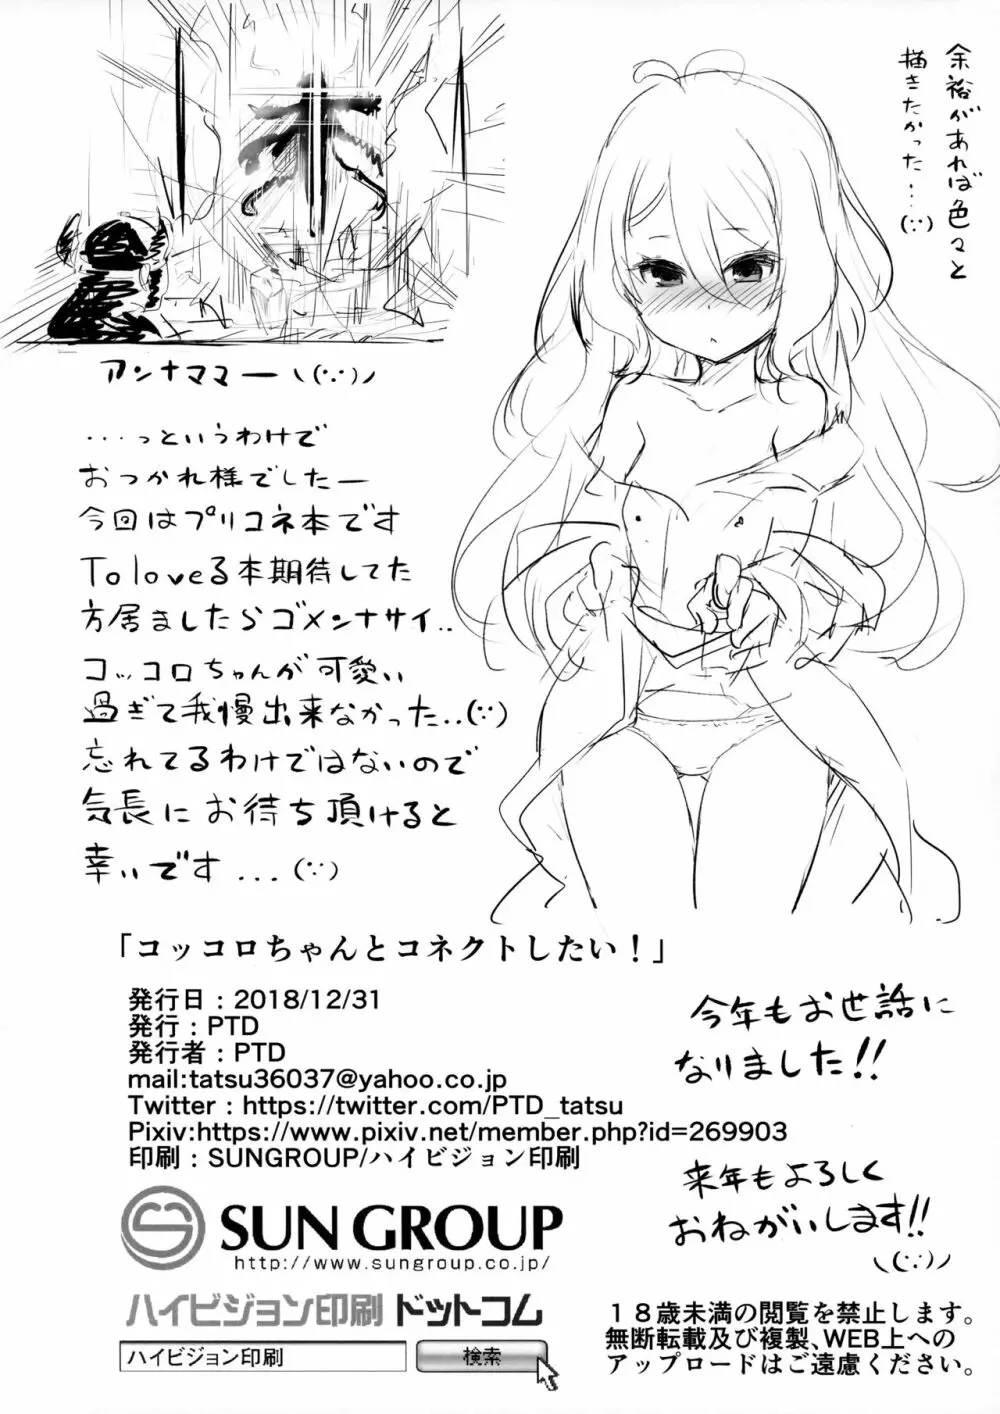 余裕があれば色々と
描きたかった…(∵)
アンナママー ヽ(∵)ノ
...っというわけで
おつかれ様でしたー
今回はプリコネ本です
Toloveる本期待してた
方居ましたらゴメンナサイ..
コッコロちゃんが可愛い
過ぎて我慢出来なかった..(∵)
忘れてるわけではないので
気長にお待ち頂けると
幸いです...(∵)
「コッコロちゃんとコネクトしたい！」
発行日：2018/12/31
発行：PTD
発行者：PTD
mail:tatsu36037@yahoo.co.jp
Twitter：https://twitter.com/PTD_tatsu
Pixiv:https://www.pixiv.net/member.php?id=269903
印刷：SUNGROUP/ハイビジョン印刷
今年もお世話に
なりました!!
来年もよろしく
おねがいします!!
ヽ(∵)ノ
SUN GROUP
http://www.sungroup.co.jp/
ハイビジョン印刷 ドットコム
ハイビジョン印刷 検索
１８歳未満の閲覧を禁止します。
無断転載及び複製、WEB上への
アップロードはご遠慮ください。